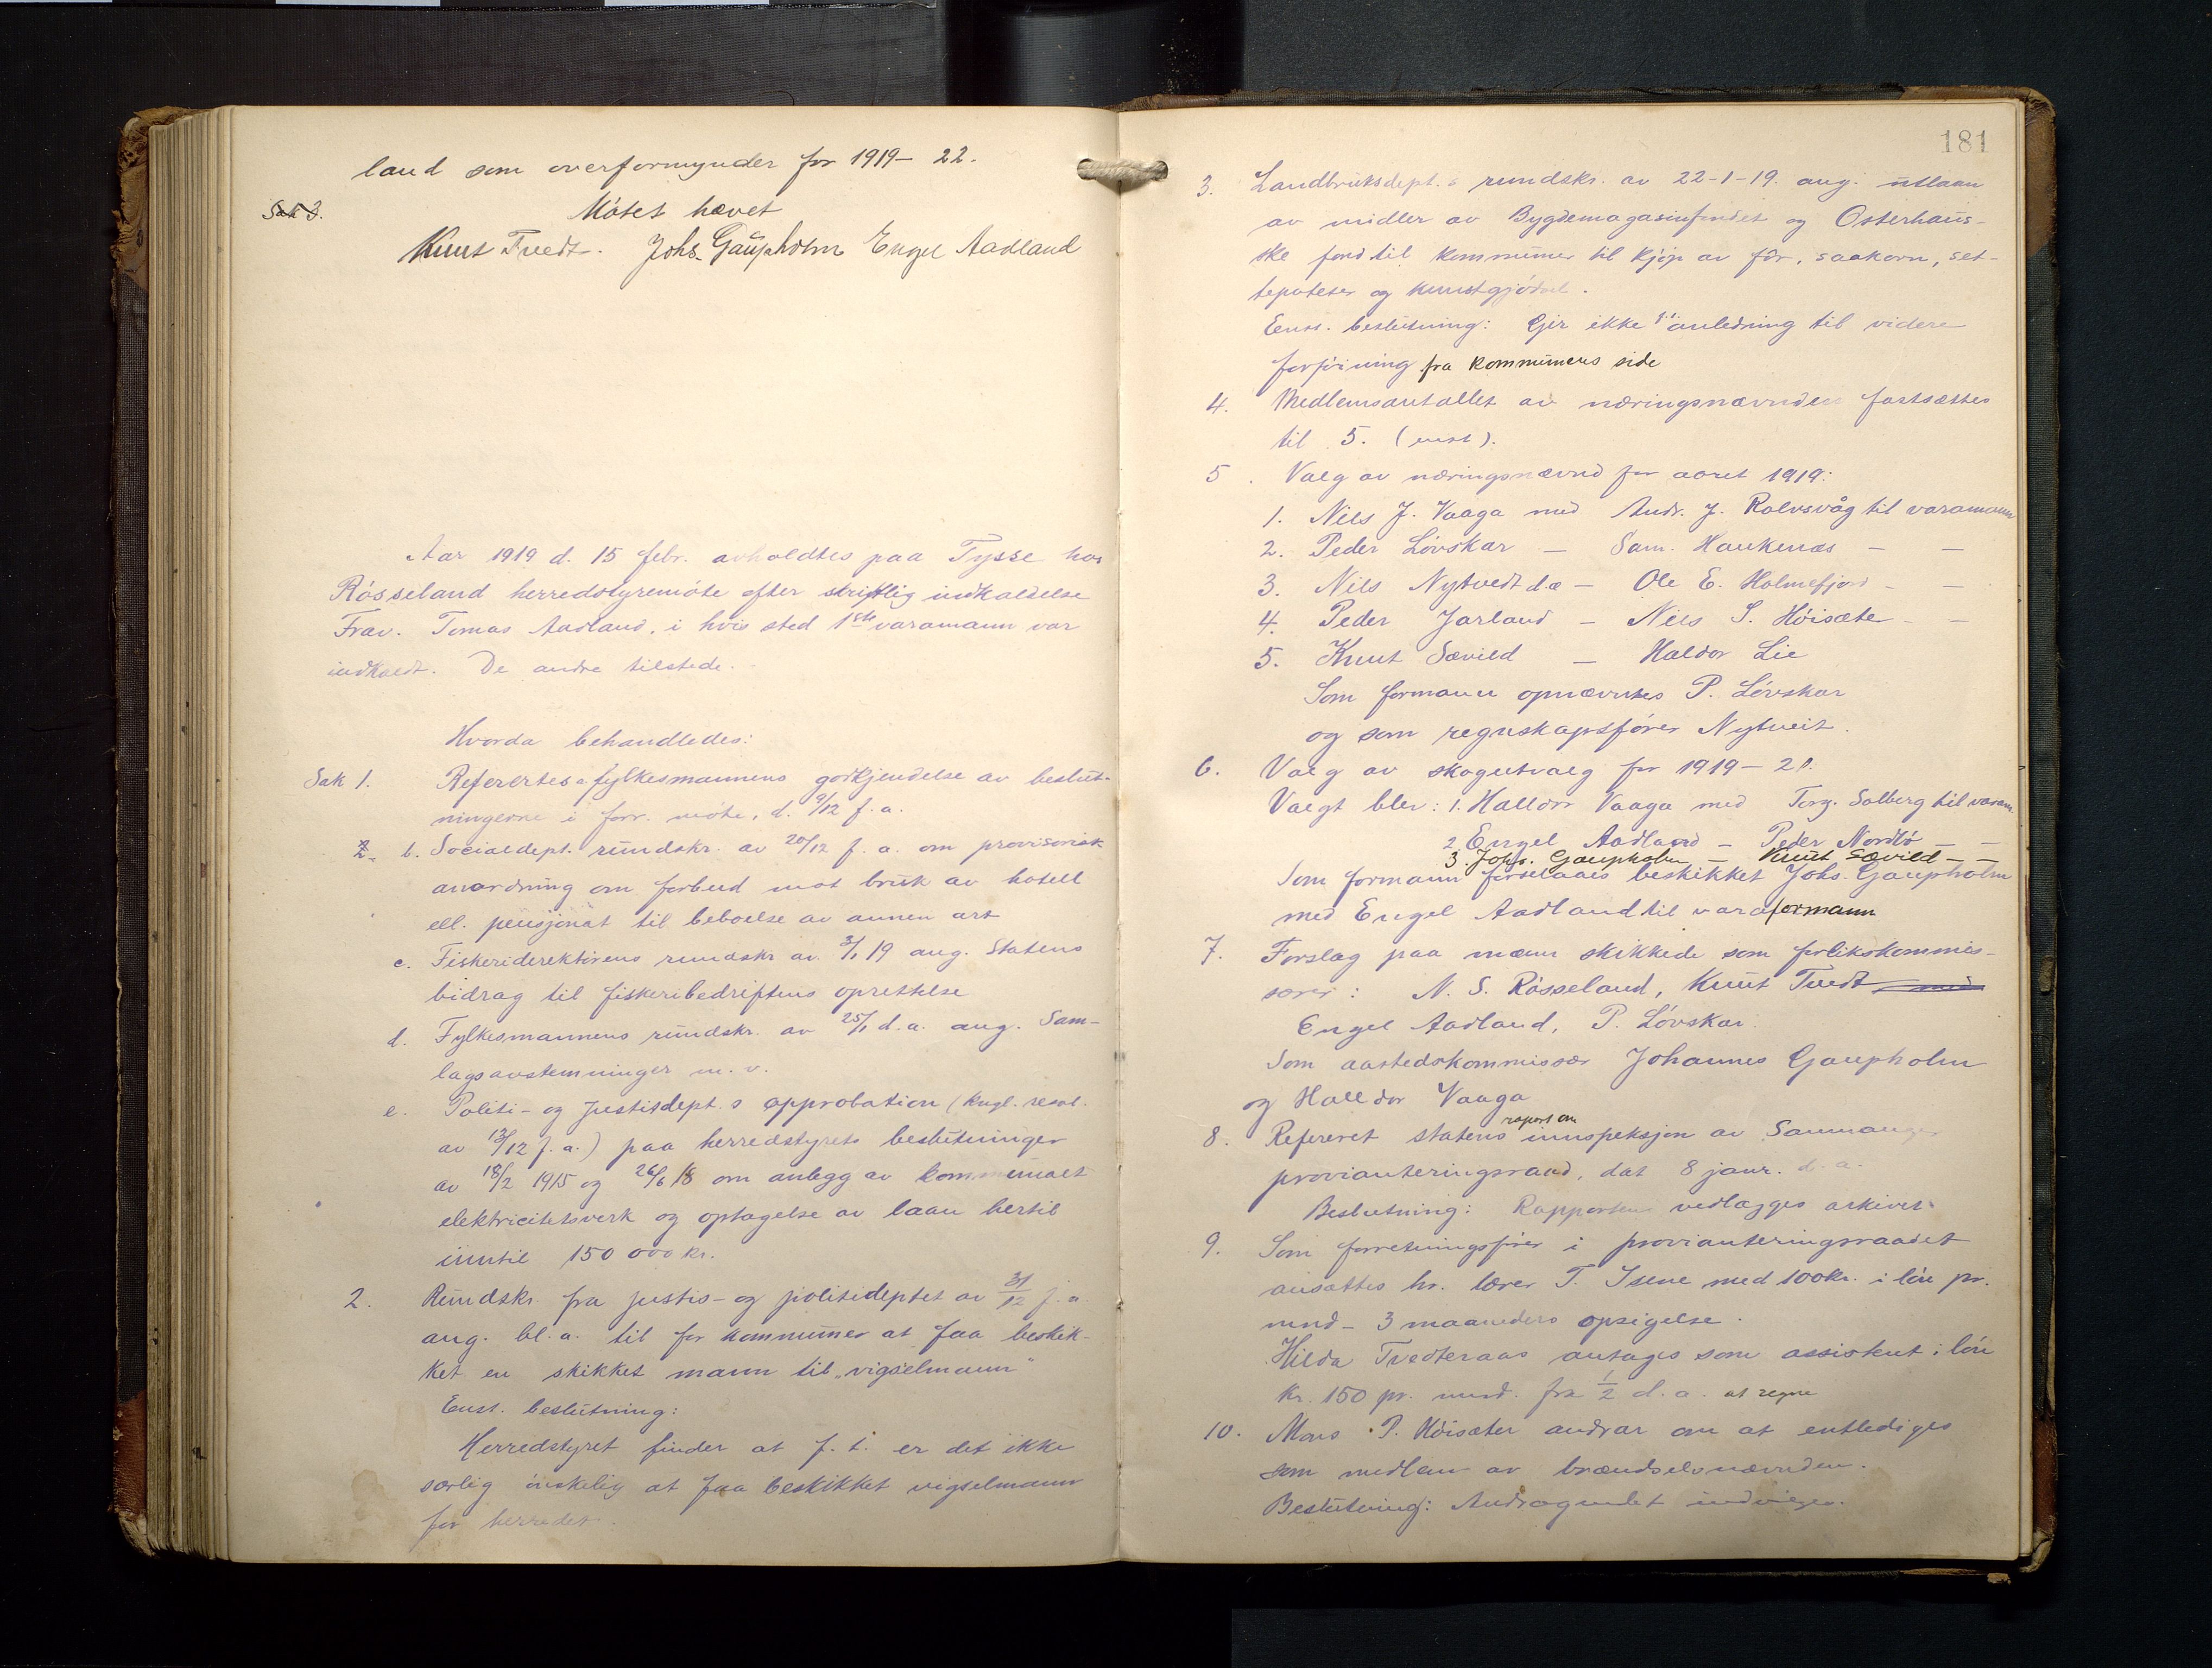 land som overformynder for 1919-22.
Sak 3.
Møtet hævet
Knut Tvedt. Johs. Gaupholm Engel Aadland
Aar 1919 d. 15 febr. avholdtes paa Tysse hos
Røsseland herredstyremøte efter skriftlig indkaldelse
Frav. Tomas Aadland, i hvis sted 1ste varamann var
indkaldt. De andre tilstede.
Hvorda behandledes:
Sak 1. Referertes a fylkesmannens godkjendelse av beslut-
ningerne i forr. møte, d. 9/12 f. a.
2. b. Socialdept. rundskr. av 20/12 f. a. om provisorisk
anordning om forbud mot bruk av hotell
ell. pensjonat til beboelse av annen art
c. Fiskeridirektørens rundskr av 3/1 19 ang. Statens
bidrag til fiskeribedriftens oprettelse
d. Fylkesmannens rundskr. av 25/1 d. a. ang. Sam-
lagsavstemninger m. v.
e. Politi- og Justisdept.s approbation (kngl. resol.
av 13/12 f. a.) paa herredstyrets beslutninger
av 18/2 1915 og 26/6 18 om anlegg av kommunalt
elektricitetsverk og optagelse av laan hertil
inntil 150 000 kr.
2. Rundskr fra justis- og politideptet av 31/12 f. a.
ang. bl. a. til for kommuner at faa beskik-
ket en skikket mann til „vigselmann"
Enst. beslutning:
Herredstyret finder at f. t. er det ikke
særlig ønskelig at faa beskikket vigselmann
for herredet.
181
3. Landbruksdept.s rundskr. av 22-1-19. ang. utlaan
av midler av Bygdemagasinfondet og Osterhaus-
ske fond til kommuner til kjøp av fôr, saakorn, set-
tepoteter og kunstgjødsel.
Enst. beslutning: Gir ikke anledning til videre
forføining fra kommunens side
4. Medlemsantallet av næringsnævnden fastsættes
til 5. (enst).
5. Valg av næringsnævnd for aaret 1919:
1. Nils J. Vaaga med Andr. J. Rolvsvåg til varamann
2. Peder Løvskar — Sam. Haukenæs — —
3. Nils Nytvedt d.æ — Ole E. Holmefjord — —
4. Peder Jarland — Nils S. Høisæter — —
5. Knut Sævild — Haldor Lie
Som formann opnævntes P. Løvskar
og som regnskapsfører Nytveit.
6. Valg av skogutvalg for 1919-21.
Valgt blev: 1. Halldor Vaaga med Torg. Solberg til varam.
2 Engel Aadland — Peder Nordbø — —
3. Johs. Gaupholm — Knut Sævild — —
Som formann forselaaes beskikket Johs. Gaupholm
med Engel Aadland til varaformann
7. Forslag paa mænn skikkede som forlikskommis-
særer: N. S. Røsseland, Knut Tvedt med
Engel Aadland, P. Løvskar.
Som aastedskommissær Johannes Gaupholm
og Halldor Vaaga
8. Referert statens raport om innspeksjon av Samnanger
provianteringsraad, dat 8 janr. d. a.
Beslutning: Rapporten vedlægges arkivet.
9. Som forretningsfører i provianteringsraadet
ansættes hr. lærer T. Isene med 100 kr. i løn pr.
mnd - 3 maaneders opsigelse.
Hilda Tvedteraas antages som assistent i løn
kr. 150 pr. mnd. fra 1/2 d. a. at regne
10. Mons P. Høisæter andrar om at entlediges
som medlem av brændselsnævnden.
Beslutning: Andragendet indvilges.